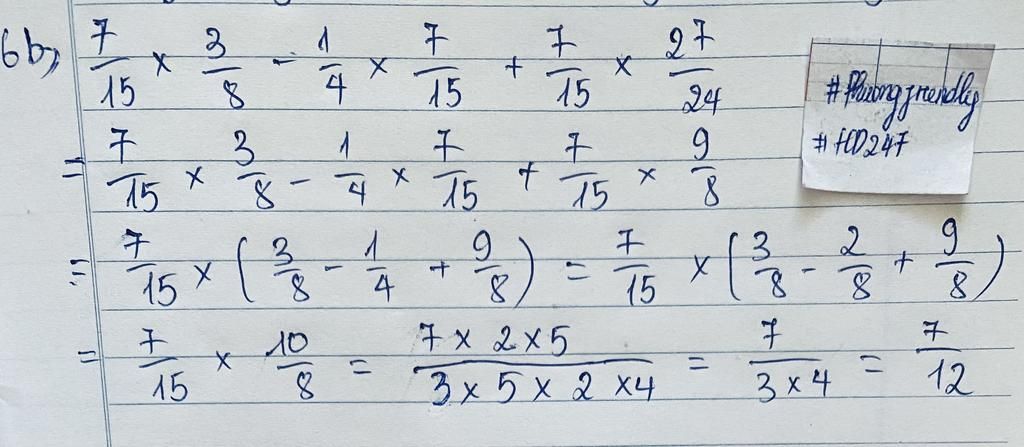 6b, 7/15 × 3/8 - 1/4 × 7/15 + 7/15 × 27/24
= 7/15 × 3/8 - 1/4 × 7/15 + 7/15 × 9/8
= 7/15 × (3/8 - 1/4 + 9/8) = 7/15 × (3/8 - 2/8 + 9/8)
= 7/15 × 10/8 = 7 × 2 × 5/3 × 5 × 2 × 4 = 7/3 × 4 = 7/12
#Phuongfriendly
#HD247